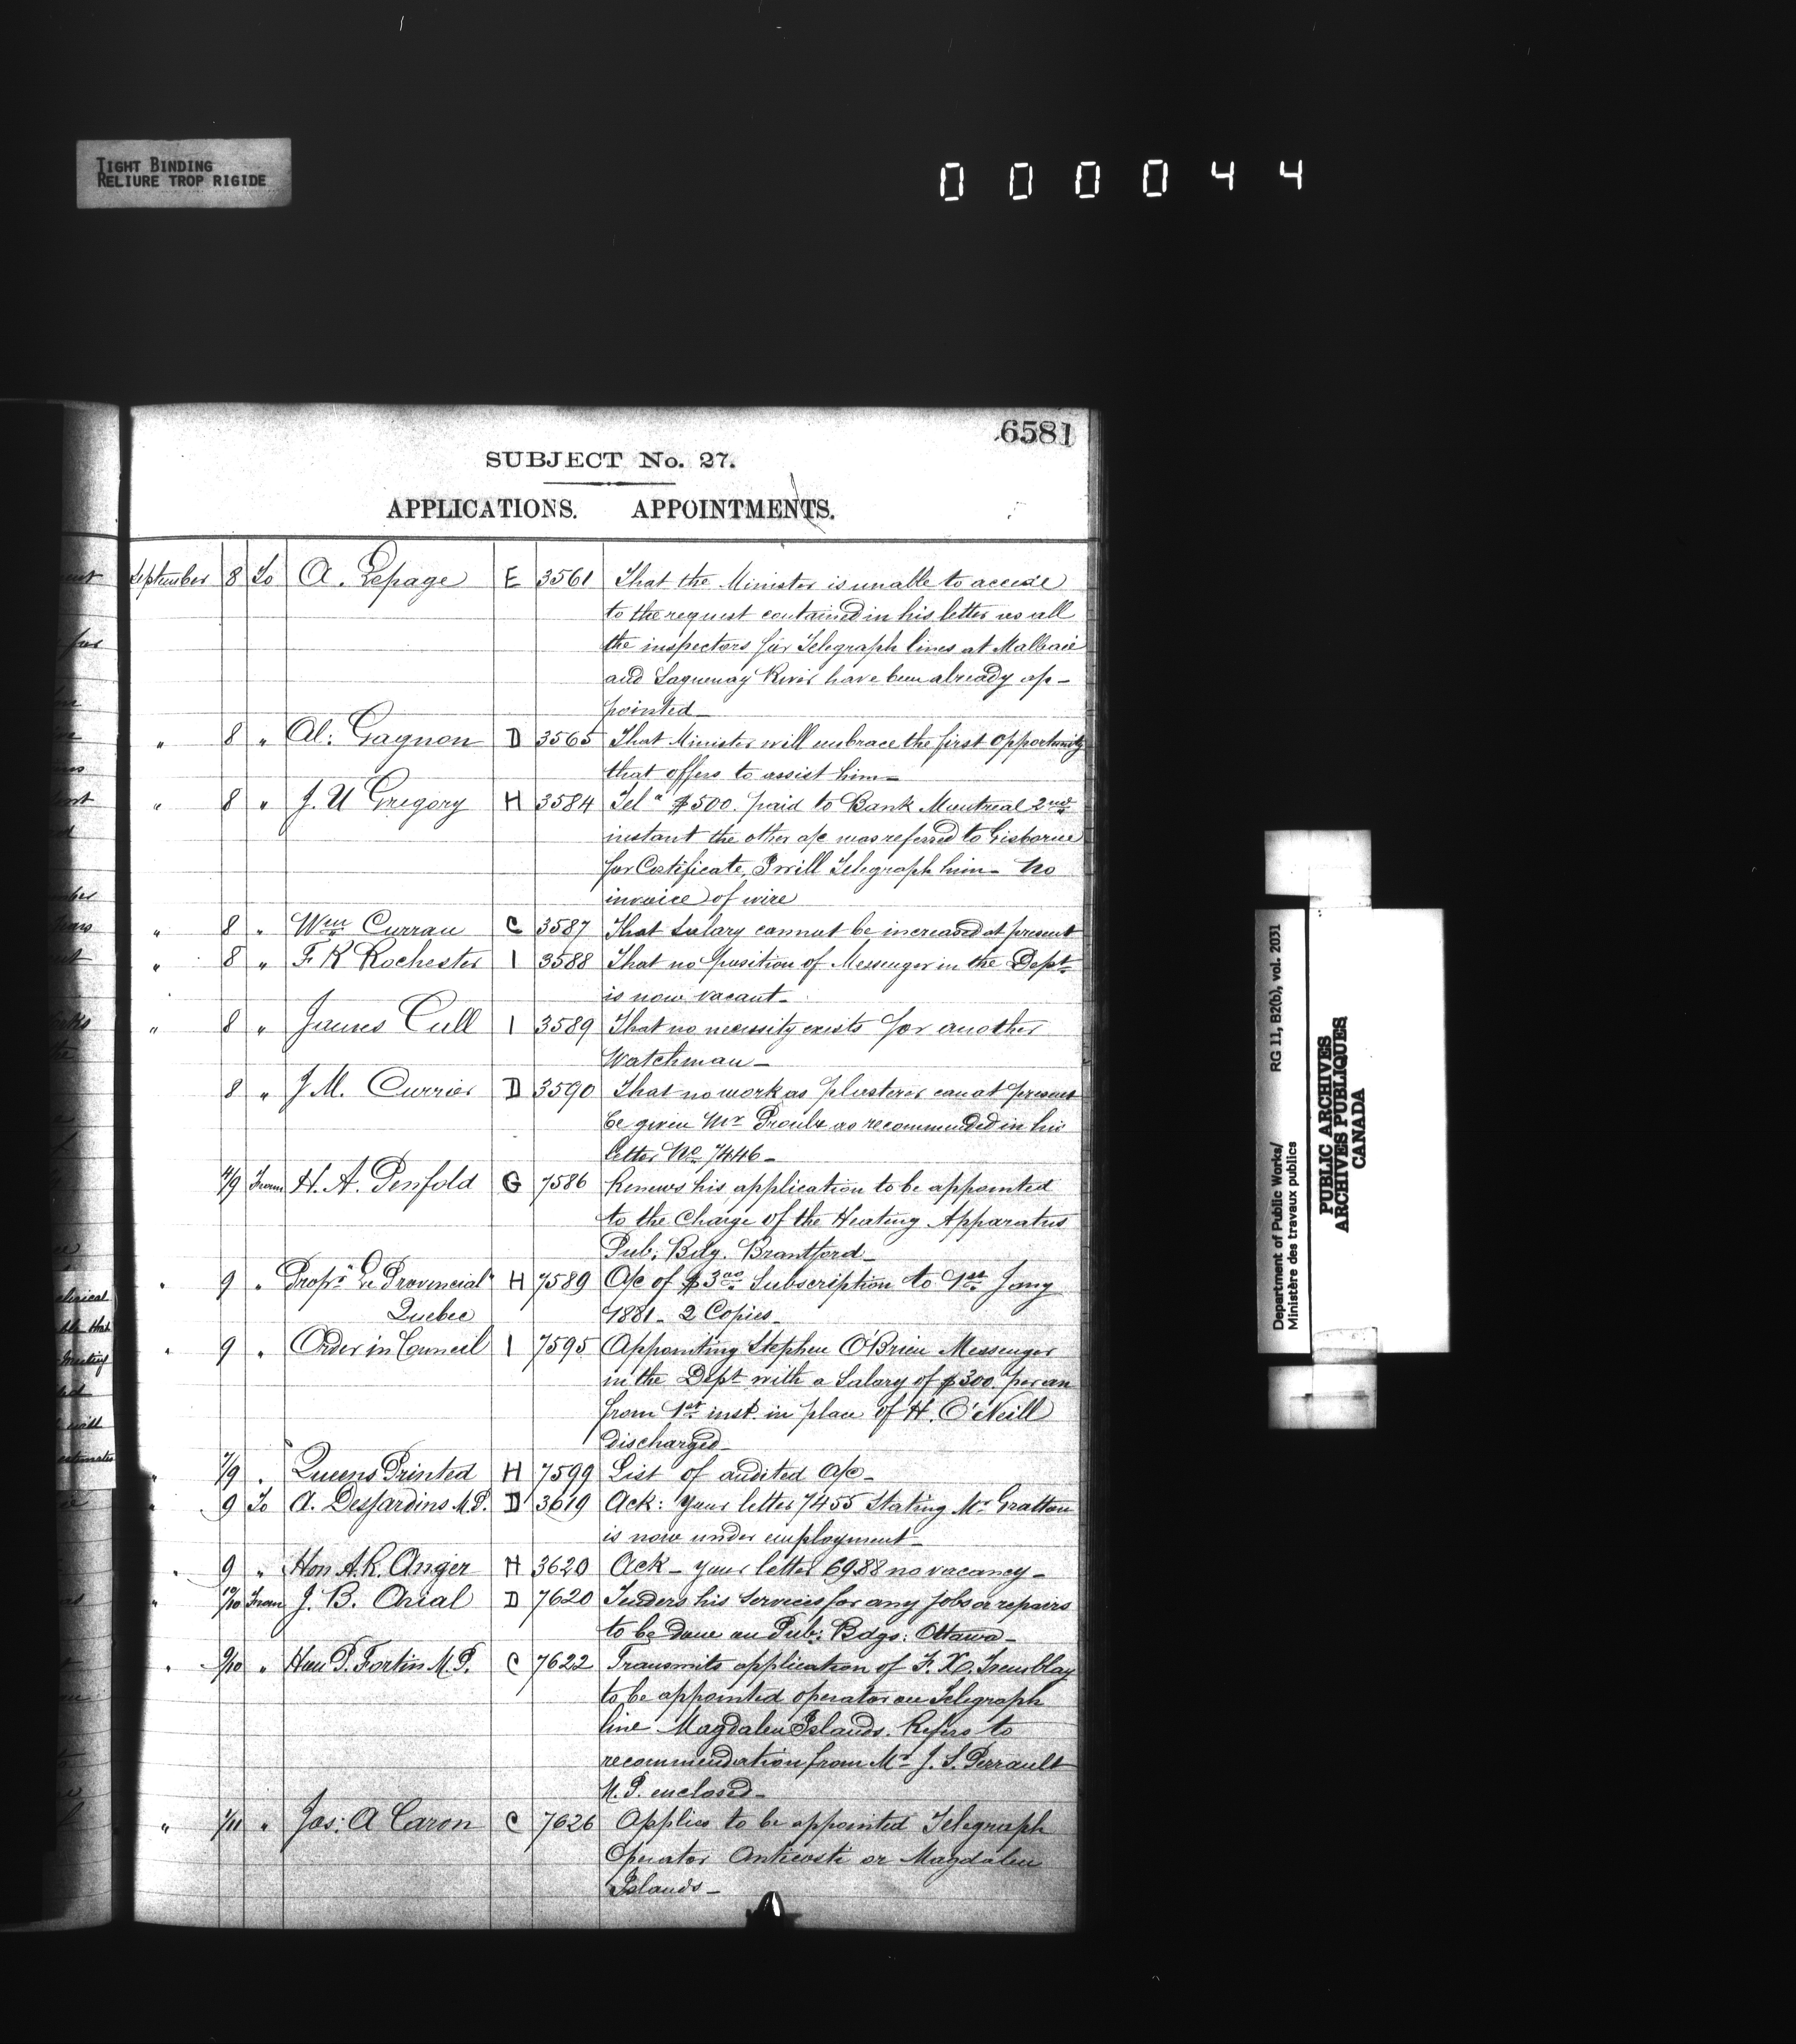 TIGHT BINDING
RELIURE TROP RIGIDE
000044
6581
SUBJECT No. 27.
APPLICATIONS. APPOINTMENTS.
September 8 To A. Lepage E 3561 That the Minister is unable to accede
to the request contained in his letter as all
the inspectors for Telegraph lines at Malbaie
and Saguenay River have been already ap-
pointed_
" 8 " Al: Gagnon D 3565 That Minister will embrace the first opportunity
that offers to assist him_
" 8 " J. U Gregory H 3584 Tel" $500. paid to Bank Montreal 2nd
instant the other a/c was referred to Gisborne
for Certificate, I will Telegraph him_ No
invoice of wire
" 8 " Wm Curran C 3587 That Salary cannot be increased at present
" 8 " F. K Rochester I 3588 That no position of Messenger in the Dept
is now vacant_
" 8 " James Cull I 3589 That no necessity exists for another
Watchman_
8 " J. M. Currier D 3590 That no work as plasterer can at present
be given Mr Proulx as recommended in his
letter No 7446_
4/9 From H. A. Penfold G 7586 Renews his application to be appointed
to the Charge of the Heating Apparatus
Pub: Bdg. Brantford_
" 9 " Proprs "Le Provincial" H 7589 A/c of $3.00 Subscription to 1st Jany
Quebec 1881_ 2 Copies_
" 9 " Order in Council I 7595 Appointing Stephen O'Brien Messenger
in the Dept with a Salary of $300. per an
from 1st inst. in place of H. O'Neill
discharged_
" 7/9 " Queens Printed H 7599 List of audited A/c_
" 9 To A. Desjardins M.P. D 3619 Ack: your letter 7455 Stating Mr Gratton
is now under employment_
" 9 " Hon A. R. Anger H 3620 Ack_ your letter 6988 no vacancy_
" 10/10 From J. B. Arial D 7620 Tenders his services for any jobs or repairs
to be done on Pub: Bdgs: Ottawa_
" 9/10 " Hon P. Fortin M.P. C 7622 Transmits application of F. X. Tremblay
to be appointed operator on Telegraph
line Magdalen Islands. Refers to
recommendation from Mr J. S. Perrault
M.P. enclosed_
" 1/11 " Jos: A Caron C 7626 Applies to be appointed Telegraph
Operator Anticosti or Magdalen
Islands_
Department of Public Works/ RG 11, B2(b), vol. 2031
Ministère des travaux publics
PUBLIC ARCHIVES
ARCHIVES PUBLIQUES
CANADA